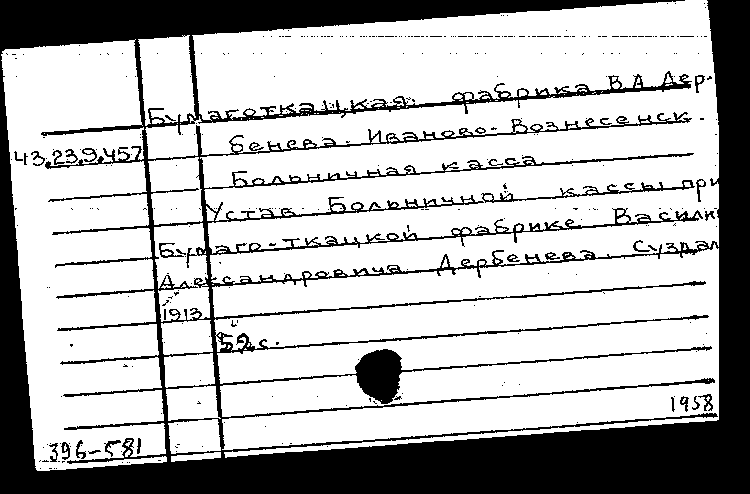 Бумаготкацкая фабрика В.А. Дер-
43.23.9.457 бенева. Иваново-Вознесенск.
Больничная касса
Устав Больничной кассы при
Бумаго-ткацкой фабрике Васили
Александровича Дербенева. Суздал
1913
52 с.
1958
396-581